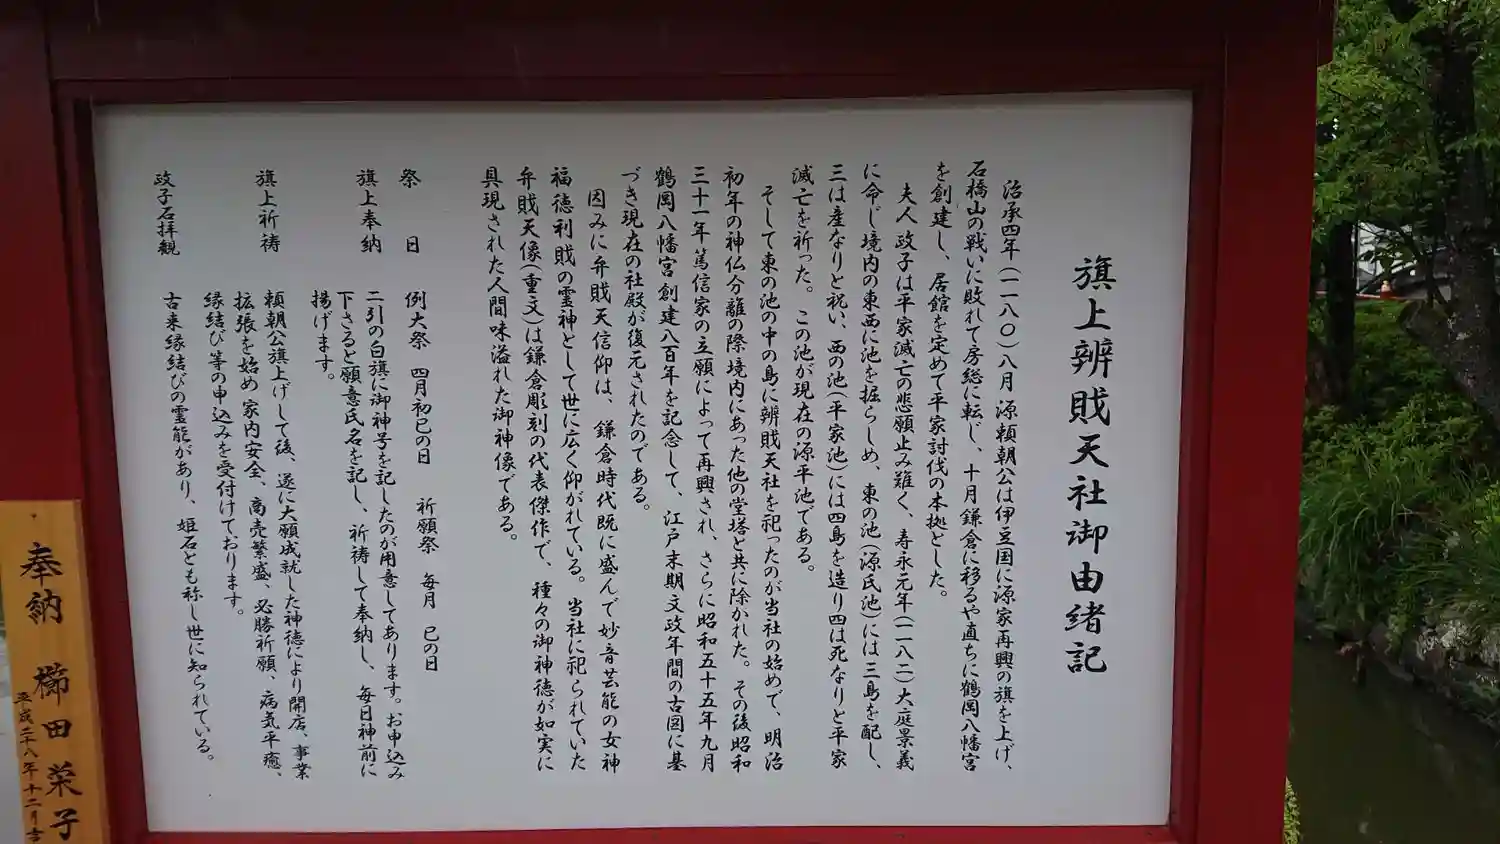 旗上辨財天社御由緒記
治承四年(一一八〇)八月源頼朝公は伊豆国に源家再興の旗を上げ、
石橋山の戦いに敗れて房総に転じ、十月鎌倉に移るや直ちに鶴岡八幡宮
を創建し、居館を定めて平家討伐の本拠とした。
夫人政子は平家滅亡の悲願止み難く、寿永元年(一一八二)大庭景義
に命じ境内の東西に池を掘らしめ、東の池(源氏池)には三島を配し、
三は産なりと祝い、西の池(平家池)には四島を造り四は死なりと平家
滅亡を祈った。この池が現在の源平池である。
そして東の池の中の島に辨財天社を祀ったのが当社の始めで、明治
初年の神仏分離の際境内にあった他の堂塔と共に除かれた。その後昭和
三十一年篤信家の立願によって再興され、さらに昭和五十五年九月
鶴岡八幡宮創建八百年を記念して、江戸末期文政年間の古図に基
づき現在の社殿が復元されたのである。
因みに弁財天信仰は、鎌倉時代既に盛んで妙音芸能の女神
福徳利財の霊神として世に広く仰がれている。当社に祀られていた
弁財天像(重文)は鎌倉彫刻の代表傑作で、種々の御神徳が如実に
具現された人間味溢れた御神像である。
祭日 例大祭 四月初巳の日 祈願祭 毎月 巳の日
旗上奉納 二引の白旗に御神号を記したのが用意してあります。お申込み
下さると願意氏名を記し、祈祷して奉納し、毎日神前に
揚げます。
旗上祈祷 頼朝公旗上げして後、遂に大願成就した神徳により開店、事業
拡張を始め家内安全、商売繁盛、必勝祈願、病気平癒、
縁結び等の申込みを受付けております。
政子石拝観 古来縁結びの霊能があり、姫石とも称し世に知られている。
奉納 櫛田栄子
平成二十八年十二月吉